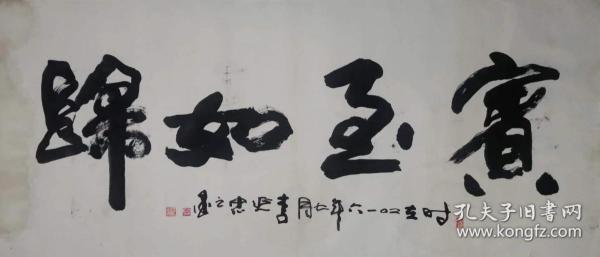 賓至如歸
时在二〇一六年七月書
孔夫子旧書网
www.kongfz.com